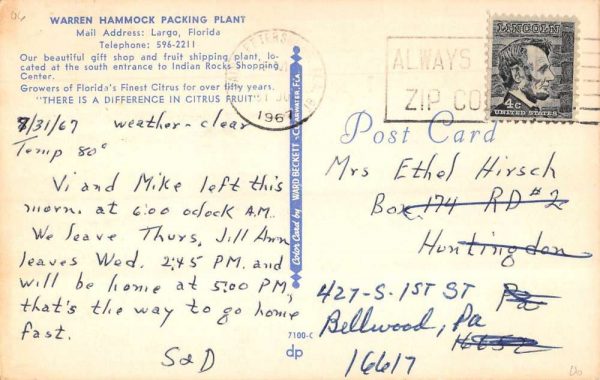 WARREN HAMMOCK PACKING PLANT
Mail Address: Largo, Florida
Telephone: 596-2211
Our beautiful gift shop and fruit shipping plant, lo-
cated at the south entrance to Indian Rocks Shopping
Center.
Growers of Florida's Finest Citrus for over fifty years.
"THERE IS A DIFFERENCE IN CITRUS FRUIT"
8/31/67 weather - clear
Temp 80°
Vi and Mike left this
morn. at 6:00 oclock A.M.
We leave Thurs, Jill Ann
leaves Wed. 2:45 P.M. and
will be home at 5:00 PM,
that's the way to go home
fast.
S&D
Color Card by WARD BECKETT-CLEARWATER, FLA.
7100-C
dp
1967
ALWAYS
ZIP CO
LINCOLN
4c
UNITED STATES
Post Card
Mrs Ethel Hirsch
Box 174 RD #2
Huntingdon
Pa
427-S. 1ST ST
Bellwood, Pa
16617